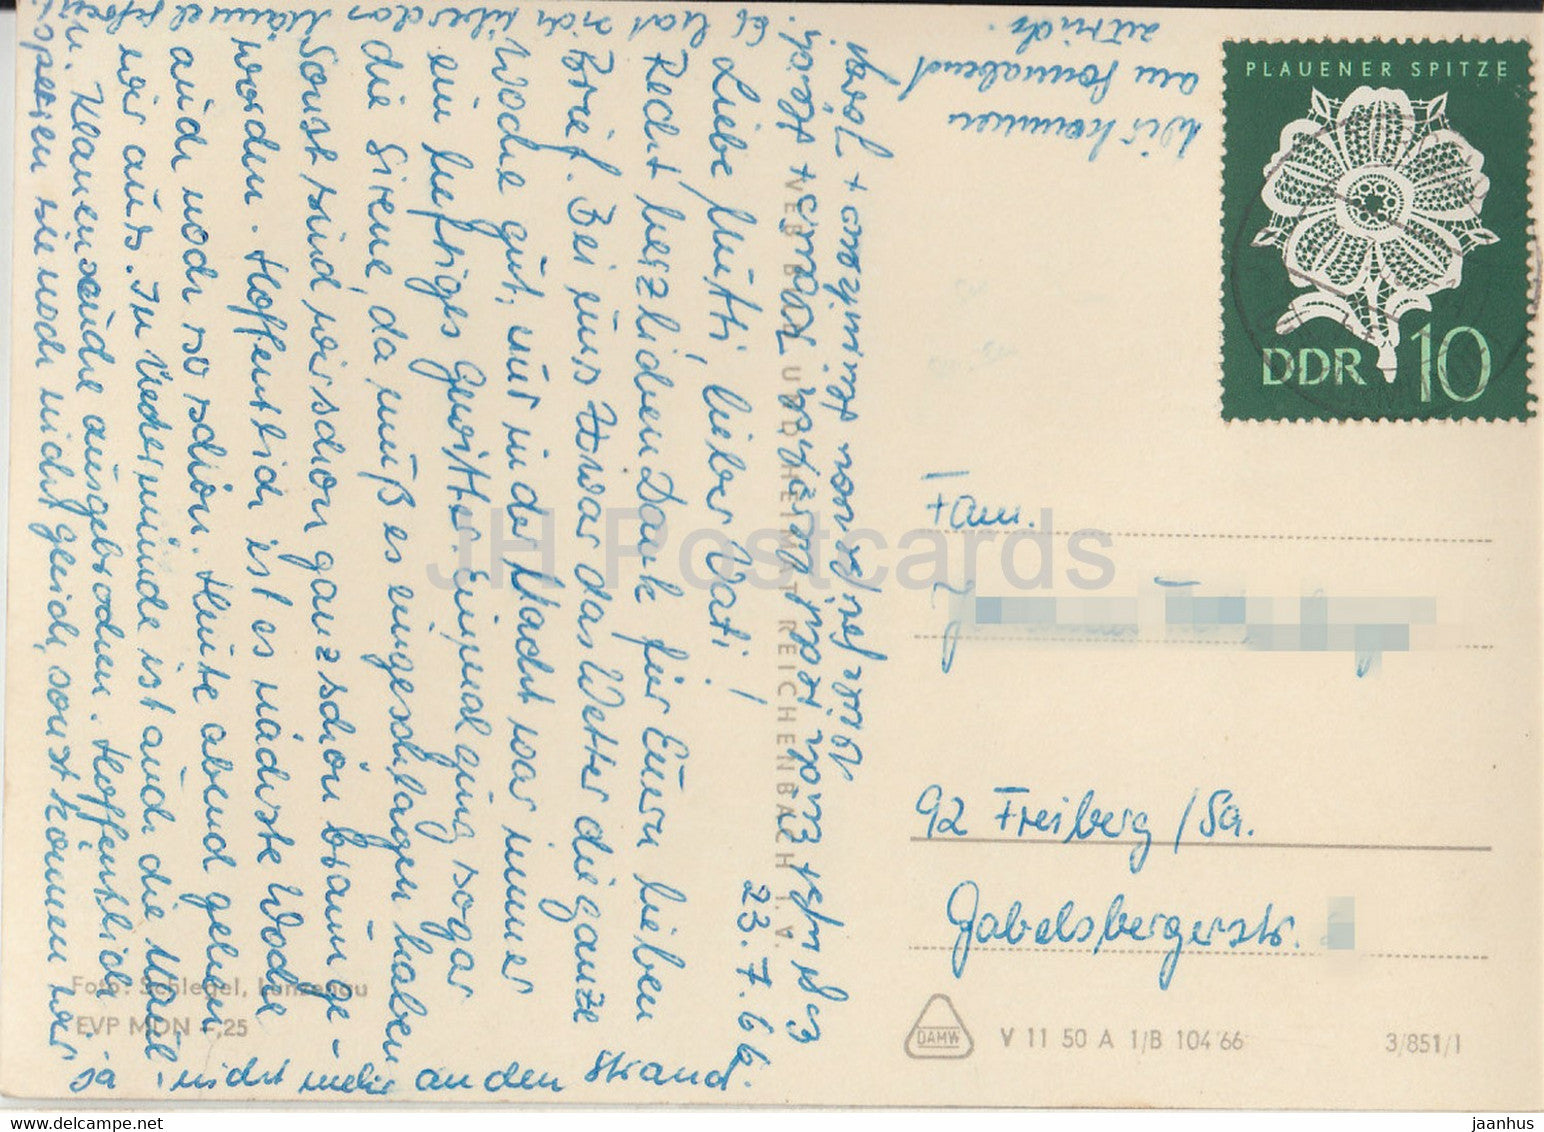 23.7.66
Liebe Mutti, lieber Vati!
Recht herzlichen Dank für Euern lieben
Brief. Bei uns war das Wetter die ganze
Woche gut, nur in der Nacht war immer
ein heftiges Gewitter. Einmal ging sogar
die Sirene, da muß es eingeschlagen haben
Sonst sind wir schon ganz schön braun ge-
worden. Hoffentlich ist es nächste Woche
auch noch so schön. Heute abend gehen
wir aus. In Ueckermünde ist auch die Maul
u. Klauenseuche ausgebrochen. Hoffentlich
sperren sie noch nicht gleich, sonst können wir
ja nicht mehr an den Strand.
Es grüßt Euch recht herzlich
Wir kommen
am Sonnabend
zurück.
PLAUENER SPITZE
DDR 10
Fam.
92 Freiberg /Sa.
Gabelsbergerstr.
VEB BILD UND HEIMAT REICHENBACH I.V.
Foto: Schlegel, Lunzenau
EVP MDN -,25
DAMW
V 11 50 A 1/B 104'66
3/851/1
JH Postcards
jaanhus @ delcampe.net